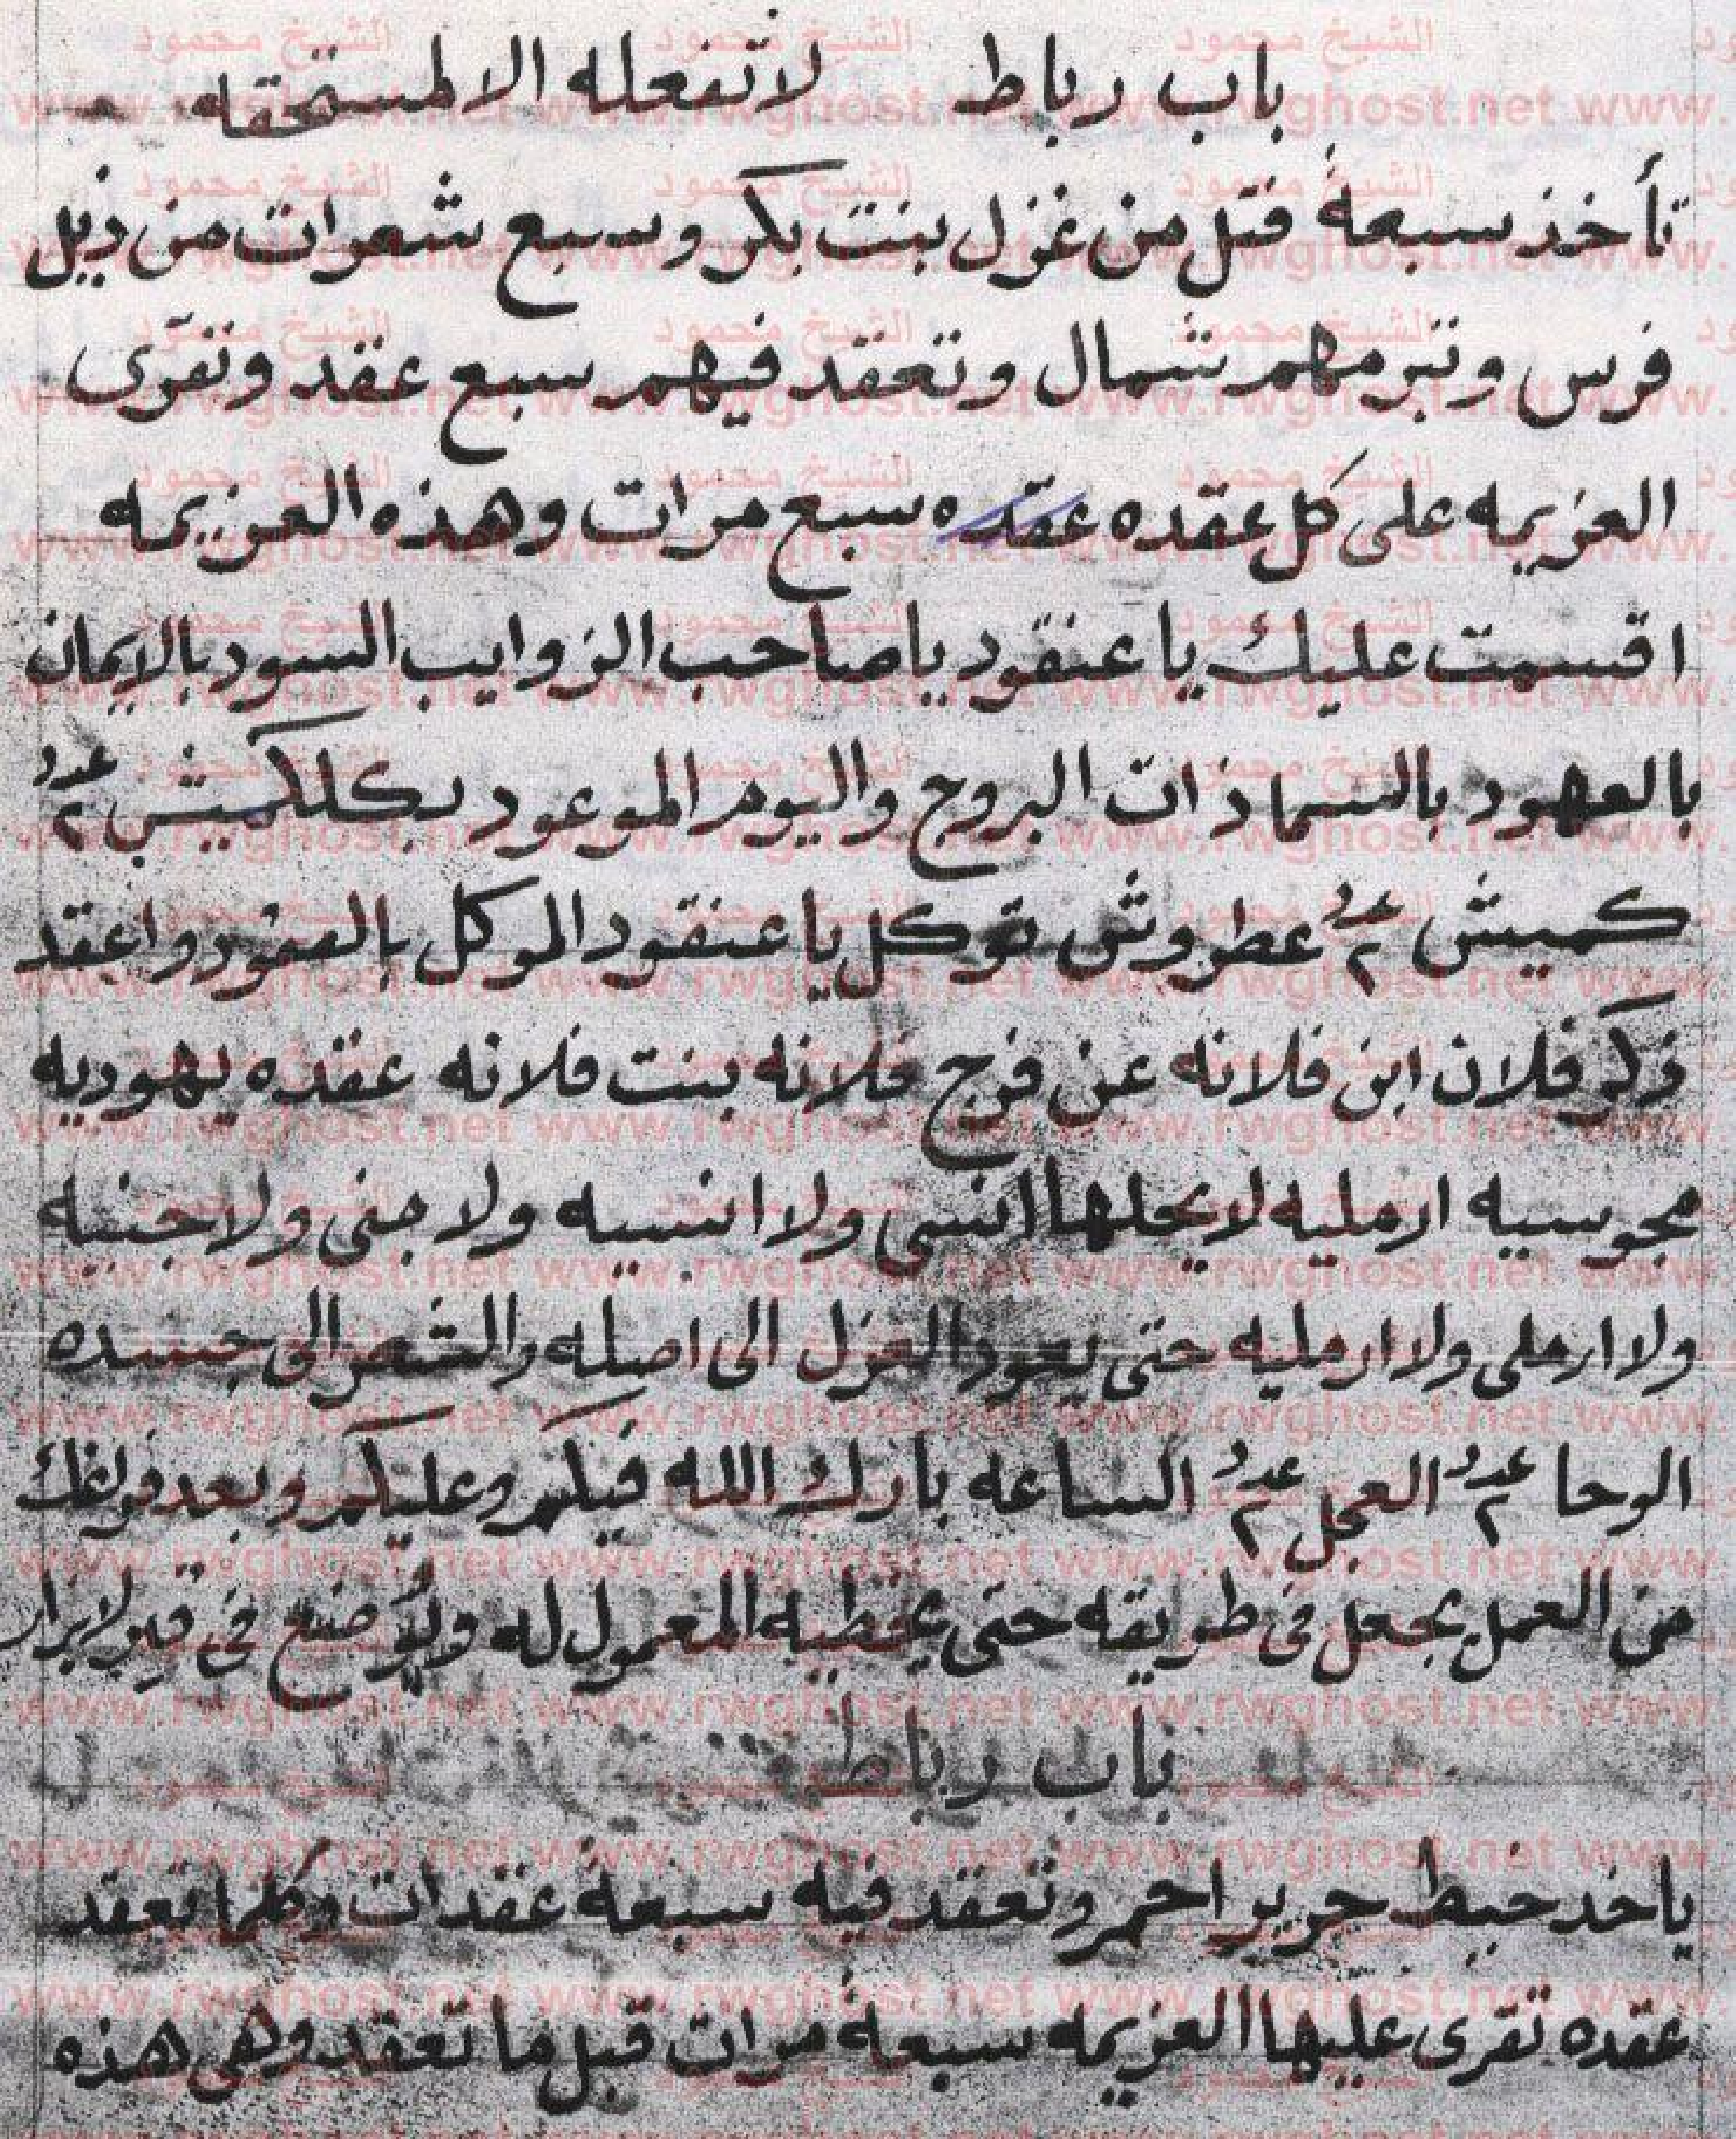 باب رباط   لاتفعله الا لمستحقه
تأخذ سبعة فتل من غزل بنت بكر وسبع شعرات من ذيل
فرس وتبرمهم شمال وتعقد فيهم سبع عقد وتقرى
العزيمه على كل عقده عقده سبع مرات وهذه العزيمه
اقسمت عليك يا عنقود يا صاحب الزوايب السود بالايمان
بالعهود بالسما ذات البروج واليوم الموعود بكلكميش عدد ٢
كميش عدد ٢ عطروش توكل يا عنقود الموكل بالعقود واعقد
ذكر فلان ابن فلانه عن فرج فلانه بنت فلانه عقده يهوديه
مجوسيه ارمليه لا يحلها انسى ولا انسيه ولا جنى ولا جنيه
ولا ارملى ولا ارمليه حتى يعود الغزل الى اصله والشعر الى جسده
الوحا عدد ٢ العجل عدد ٢ الساعه بارك الله فيكم وعليكم وبعد فراغك
من العمل يجعل فى طريقه حتى يخطيه المعمول له ويوضع فى قبر لا يزار
باب رباط
ياخد خيط حرير احمر وتعقد فيه سبعة عقدات وكلما تعقد
عقده تقرى عليها العزيمه سبعة مرات قبل ما تعقد وهى هذه
الشيخ محمود
www.rwghost.net